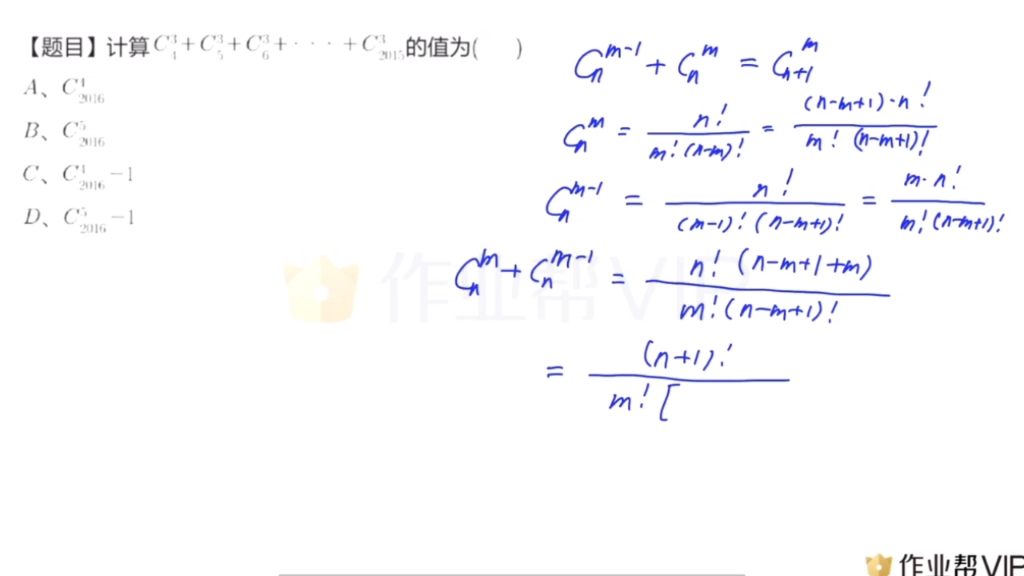 【题目】计算 C₄³+C₅³+C₆³+···+C₂₀₁₅³ 的值为(  )
A、C₂₀₁₆⁴
B、C₂₀₁₆⁵
C、C₂₀₁₆⁴−1
D、C₂₀₁₆⁵−1
Cₙᵐ⁻¹ + Cₙᵐ = Cₙ₊₁ᵐ
Cₙᵐ = n!/(m!(n-m)!) = ((n-m+1)·n!)/(m!(n-m+1)!)
Cₙᵐ⁻¹ = n!/((m-1)!(n-m+1)!) = (m·n!)/(m!(n-m+1)!)
Cₙᵐ + Cₙᵐ⁻¹ = (n!(n-m+1+m))/(m!(n-m+1)!)
= (n+1)!/(m![
作业帮VIP
作业帮VIP